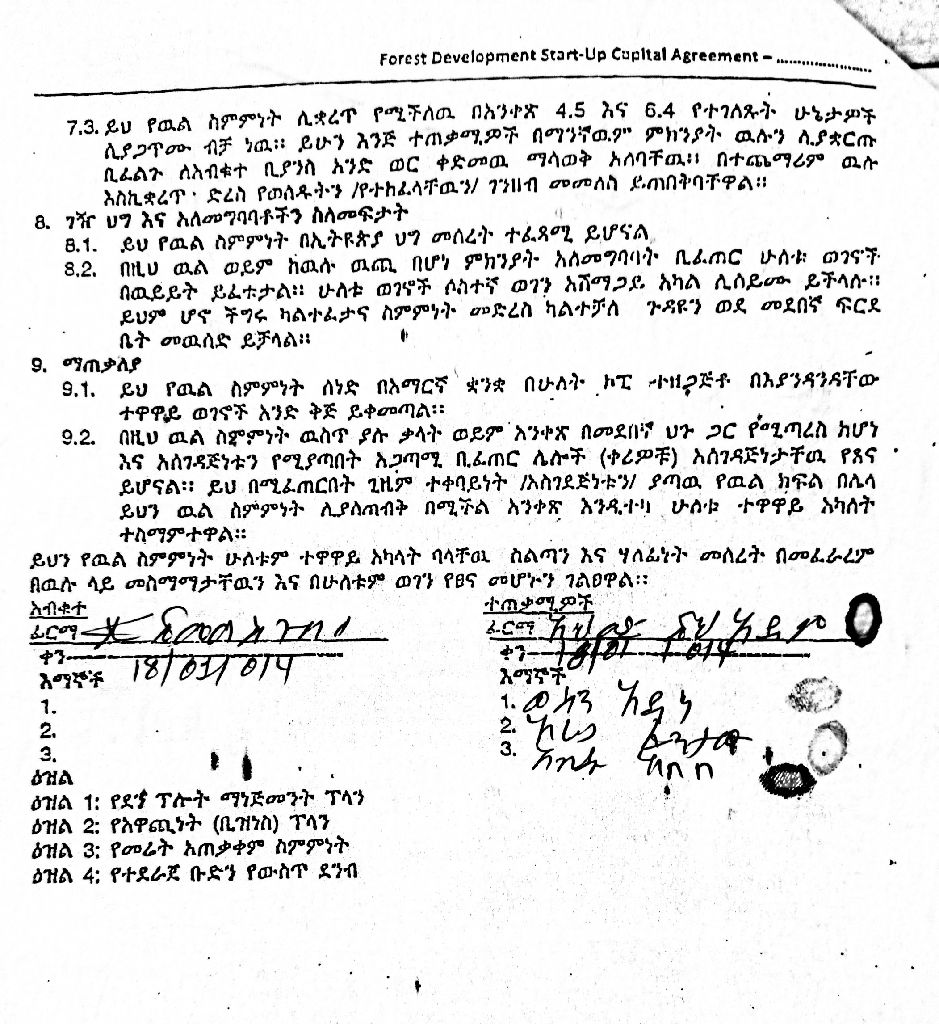 Forest Development Start-Up Capital Agreement – ........................
7.3. ይህ የዉል ስምምነት ሊቋረጥ የሚችለዉ በአንቀጽ 4.5 እና 6.4 የተገለጹት ሁኔታዎች
ሲያጋጥሙ ብቻ ነዉ። ይሁን እንጅ ተጠቃሚዎች በማንኛዉም ምክንያት ዉሉን ሊያቋርጡ
ቢፈልጉ ለአብቁተ ቢያንስ አንድ ወር ቀድመዉ ማሳወቅ አለባቸዉ። በተጨማሪም ዉሉ
እስኪቋረጥ ድረስ የወሰዱትን /የተከፈላቸዉን/ ገንዘብ መመለስ ይጠበቅባቸዋል።
8. ገዥ ህግ እና አለመግባባቶችን ስለመፍታት
8.1. ይህ የዉል ስምምነት በኢትዮጵያ ህግ መሰረት ተፈጻሚ ይሆናል
8.2. በዚህ ዉል ወይም ከዉሉ ዉጪ በሆነ ምክንያት አለመግባባት ቢፈጠር ሁለቱ ወገኖች
በዉይይት ይፈቱታል። ሁለቱ ወገኖች ሶስተኛ ወገን አሸማጋይ አካል ሊሰይሙ ይችላሉ።
ይህም ሆኖ ችግሩ ካልተፈታና ስምምነት መድረስ ካልተቻለ ጉዳዩን ወደ መደበኛ ፍርደ
ቤት መዉሰድ ይቻላል።
9. ማጠቃለያ
9.1. ይህ የዉል ስምምነት ሰነድ በአማርኛ ቋንቋ በሁለት ኮፒ ተዘጋጅቶ በእያንዳንዳቸው
ተዋዋይ ወገኖች አንድ ቅጅ ይቀመጣል።
9.2. በዚህ ዉል ስምምነት ዉስጥ ያሉ ቃላት ወይም አንቀጽ በመደበኛ ህጉ ጋር የሚጣረስ ከሆነ
እና አስገዳጅነቱን የሚያጣበት አጋጣሚ ቢፈጠር ሌሎች (ቀሪዎቹ) አስገዳጅነታቸዉ የጸና
ይሆናል። ይህ በሚፈጠርበት ጊዜም ተቀባይነት /አስገደጅነቱን/ ያጣዉ የዉል ክፍል በሌላ
ይህን ዉል ስምምነት ሊያስጠብቅ በሚችል አንቀጽ እንዲተካ ሁለቱ ተዋዋይ አካለት
ተስማምተዋል።
ይህን የዉል ስምምነት ሁለቱም ተዋዋይ አካላት ባላቸዉ ስልጣን እና ሃላፊነት መሰረት በመፈራረም
በዉሉ ላይ መስማማታቸዉን እና በሁለቱም ወገን የፀና መሆኑን ገልፀዋል።
አብቁተ
ፊርማ
ቀን 18/01/014
እማኞች
1.
2.
3.
ተጠቃሚዎች
ፊርማ
ቀን 18/01/014
እማኞች
1.
2.
3.
ዕዝል
ዕዝል 1: የደን ፕሎት ማነጅመንት ፕላን
ዕዝል 2: የአዋጪነት (ቢዝነስ) ፕላን
ዕዝል 3: የመሬት አጠቃቀም ስምምነት
ዕዝል 4: የተደራጀ ቡድን የውስጥ ደንብ